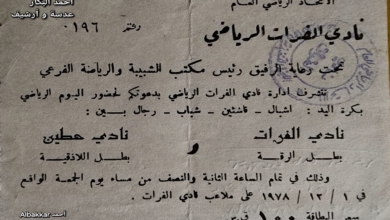 أحمد البكار
عدسة و أرشيف
الاتحاد الرياضي العام
نادي الفرات الرياضي
٠١٩٦
تحت رعاية الرفيق رئيس مكتب الشبيبة والرياضة الفرعي
تتشرف ادارة نادي الفرات الرياضي بدعوتكم لحضور اليوم الرياضي
بكرة اليد : اشبال - ناشئين - شباب - رجال بين :
نادي الفرات و نادي حطين
بطل الرقة بطل اللاذقية
وذلك في تمام الساعة الثانية والنصف من مساء يوم الجمعة الواقع
في ١٣ / ١ / ١٩٧٨ على ملاعب نادي الفرات .
سعر البطاقة
Albakkar